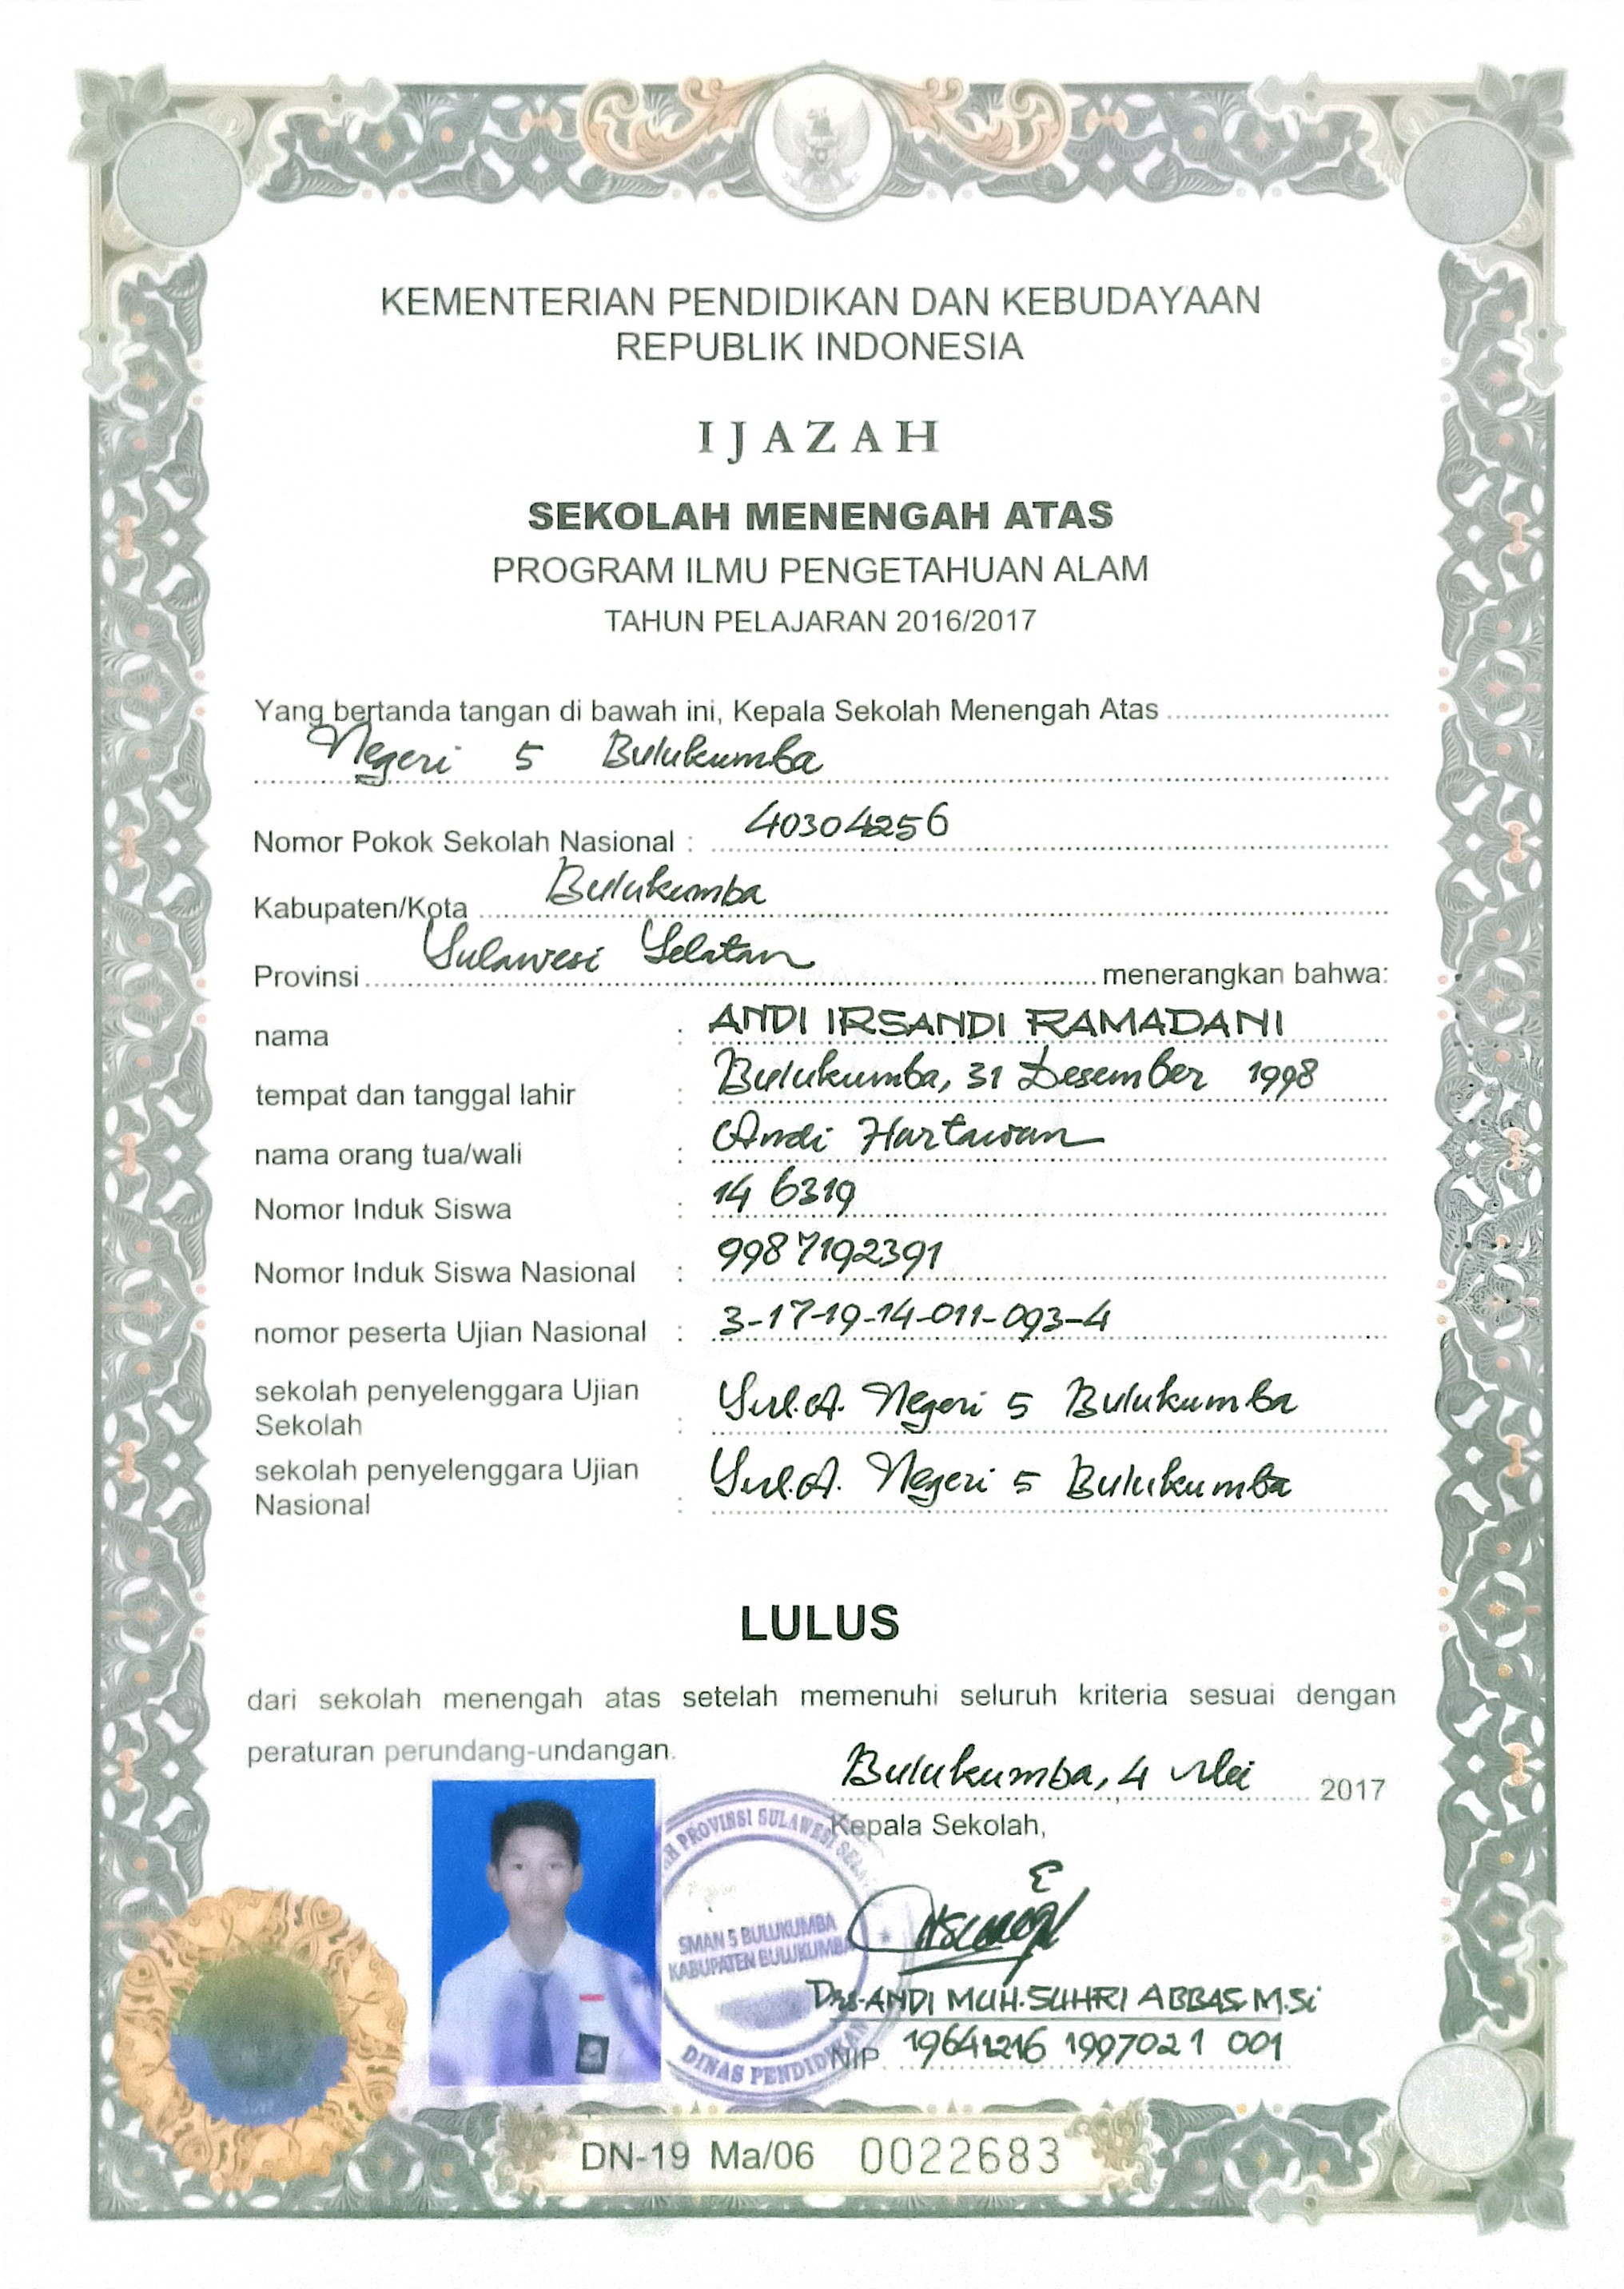 KEMENTERIAN PENDIDIKAN DAN KEBUDAYAAN
REPUBLIK INDONESIA
IJAZAH
SEKOLAH MENENGAH ATAS
PROGRAM ILMU PENGETAHUAN ALAM
TAHUN PELAJARAN 2016/2017
Yang bertanda tangan di bawah ini, Kepala Sekolah Menengah Atas
Negeri 5 Bulukumba
Nomor Pokok Sekolah Nasional : 40304256
Kabupaten/Kota Bulukumba
Provinsi Sulawesi Selatan menerangkan bahwa:
nama : ANDI IRSANDI RAMADANI
tempat dan tanggal lahir : Bulukumba, 31 Desember 1998
nama orang tua/wali : Andi Hartawan
Nomor Induk Siswa : 14 6319
Nomor Induk Siswa Nasional : 9987192391
nomor peserta Ujian Nasional : 3-17-19-14-011-093-4
sekolah penyelenggara Ujian
Sekolah : SMA Negeri 5 Bulukumba
sekolah penyelenggara Ujian
Nasional : SMA Negeri 5 Bulukumba
LULUS
dari sekolah menengah atas setelah memenuhi seluruh kriteria sesuai dengan
peraturan perundang-undangan.
Bulukumba, 4 Mei 2017
Kepala Sekolah,
PROVINSI SULAWESI SELATAN
SMAN 5 BULUKUMBA
KABUPATEN BULUKUMBA
DINAS PENDIDIKAN
Drs. ANDI MUH. SUHRI ABBAS. M.Si
NIP. 19641216 1997021 001
DN-19 Ma/06 0022683